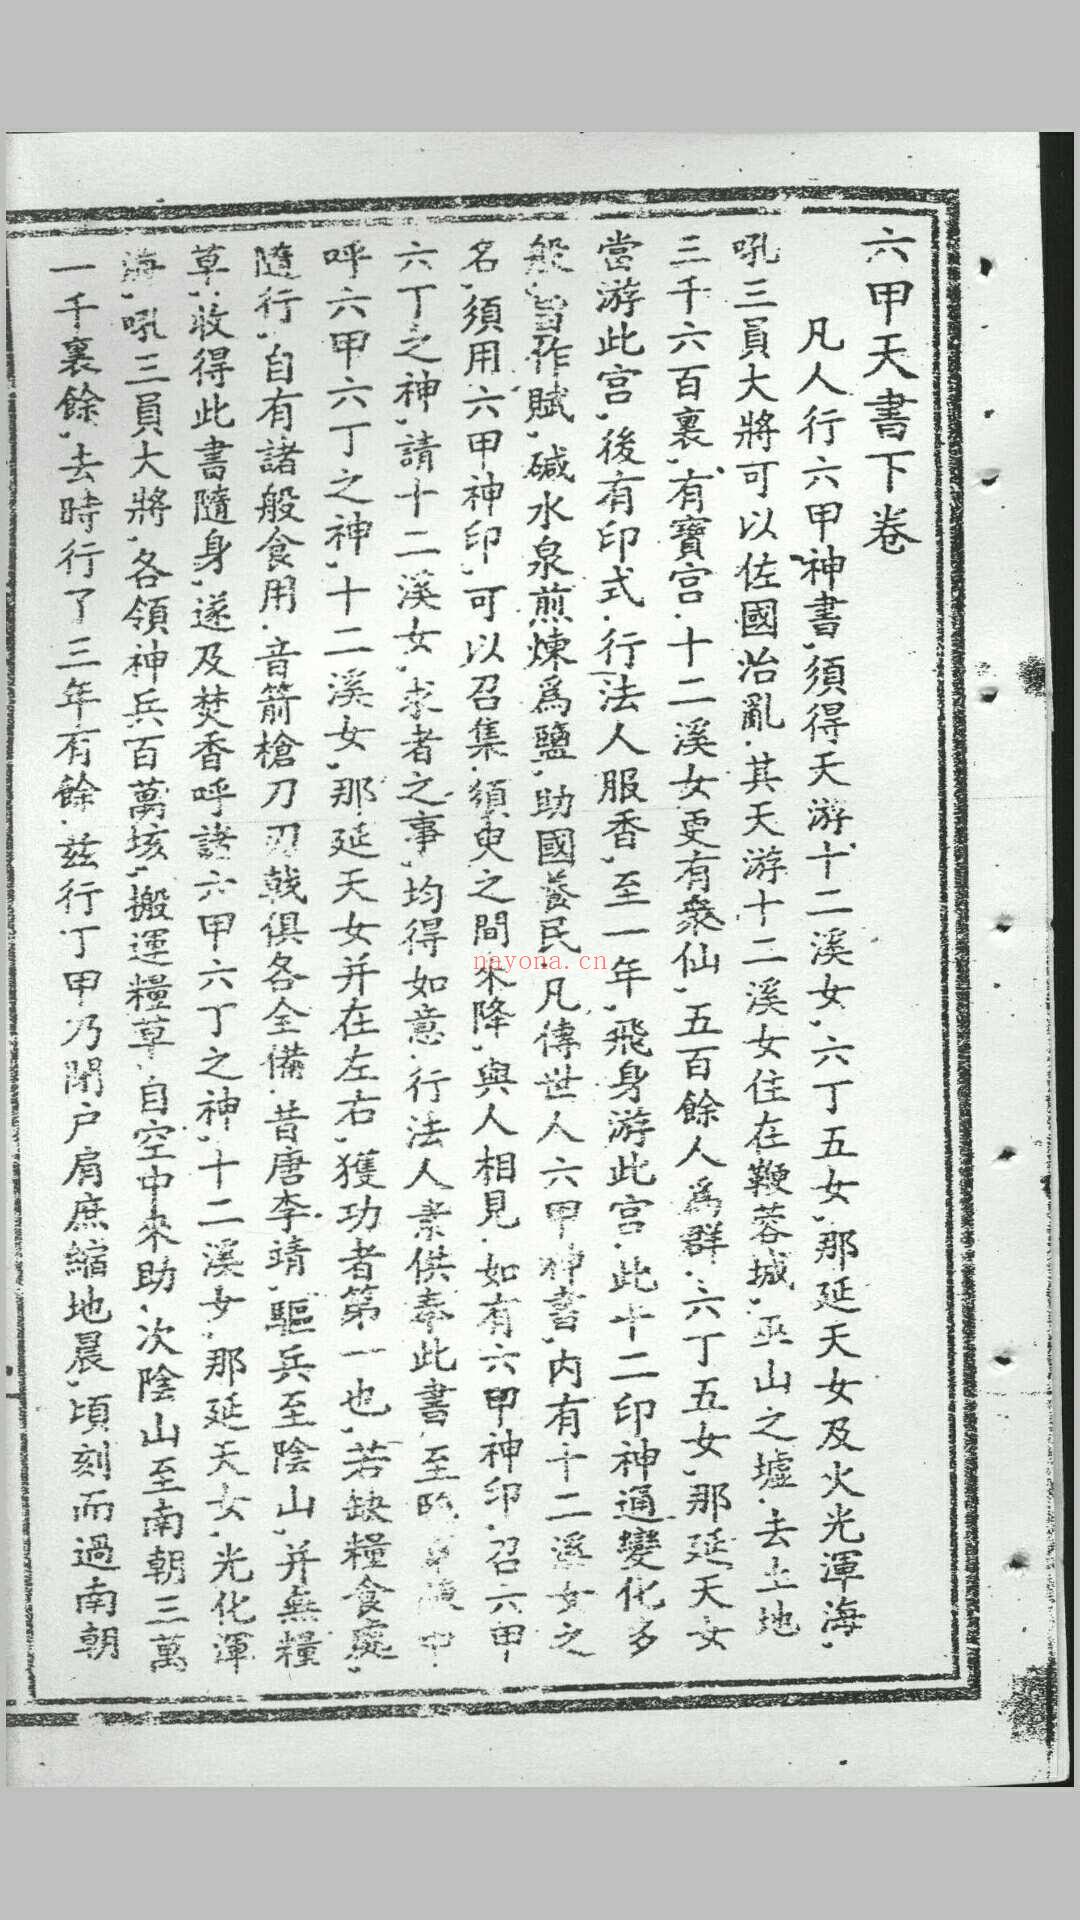 六甲天書下卷
凡人行六甲神書，須得天游十二溪女，六丁五女，那延天女及火光渾海，
吼三員大將可以佐國治亂．其天游十二溪女住在鞭蓉城，巫山之墟．去土地
三千六百裏，有寶宫．十二溪女更有衆仙，五百餘人爲群．六丁五女，那延天女
當游此宫，後有印式．行法人服香，至一年，飛身游此宫．此十二印神通變化多
般，皆作賦，碱水泉煎煉爲鹽，助國養民．凡傳世人六甲神書，内有十二溪女之
名，須用六甲神印，可以召集．須臾之間來降，與人相見．如有六甲神印．召六甲
六丁之神，請十二溪女，求者之事，均得如意．行法人素供奉此書，至 中
呼六甲六丁之神，十二溪女，那延天女并在左右，獲功者第一也，若缺糧食處，
隨行，自有諸般食用．音箭槍刀刃戟俱各全備．昔唐李靖，驅兵至陰山，并無糧
草，收得此書隨身，遂及焚香呼諸六甲六丁之神，十二溪女，那延天女，光化渾
海，吼三員大將，各領神兵百萬垓，搬運糧草，自空中來助．次陰山至南朝三萬
一千裏餘，去時行了三年有餘．兹行丁甲乃閉户肩庶縮地晨，頃刻而過南朝
nayona.cn